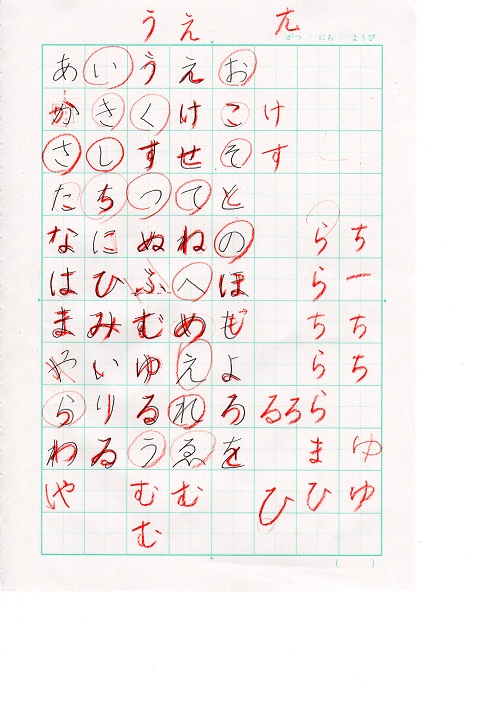 うえ 尢
がつ にち ようび
あいうえお
かきくけこ け
さしすせそ す
たちつてと
なにぬねの らち
はひふへほ らー
まみむめも ちち
やいゆえよ らち
らりるれろ るろら
わゐうゑを まゆ
や むむ ひひゆ
む
( )